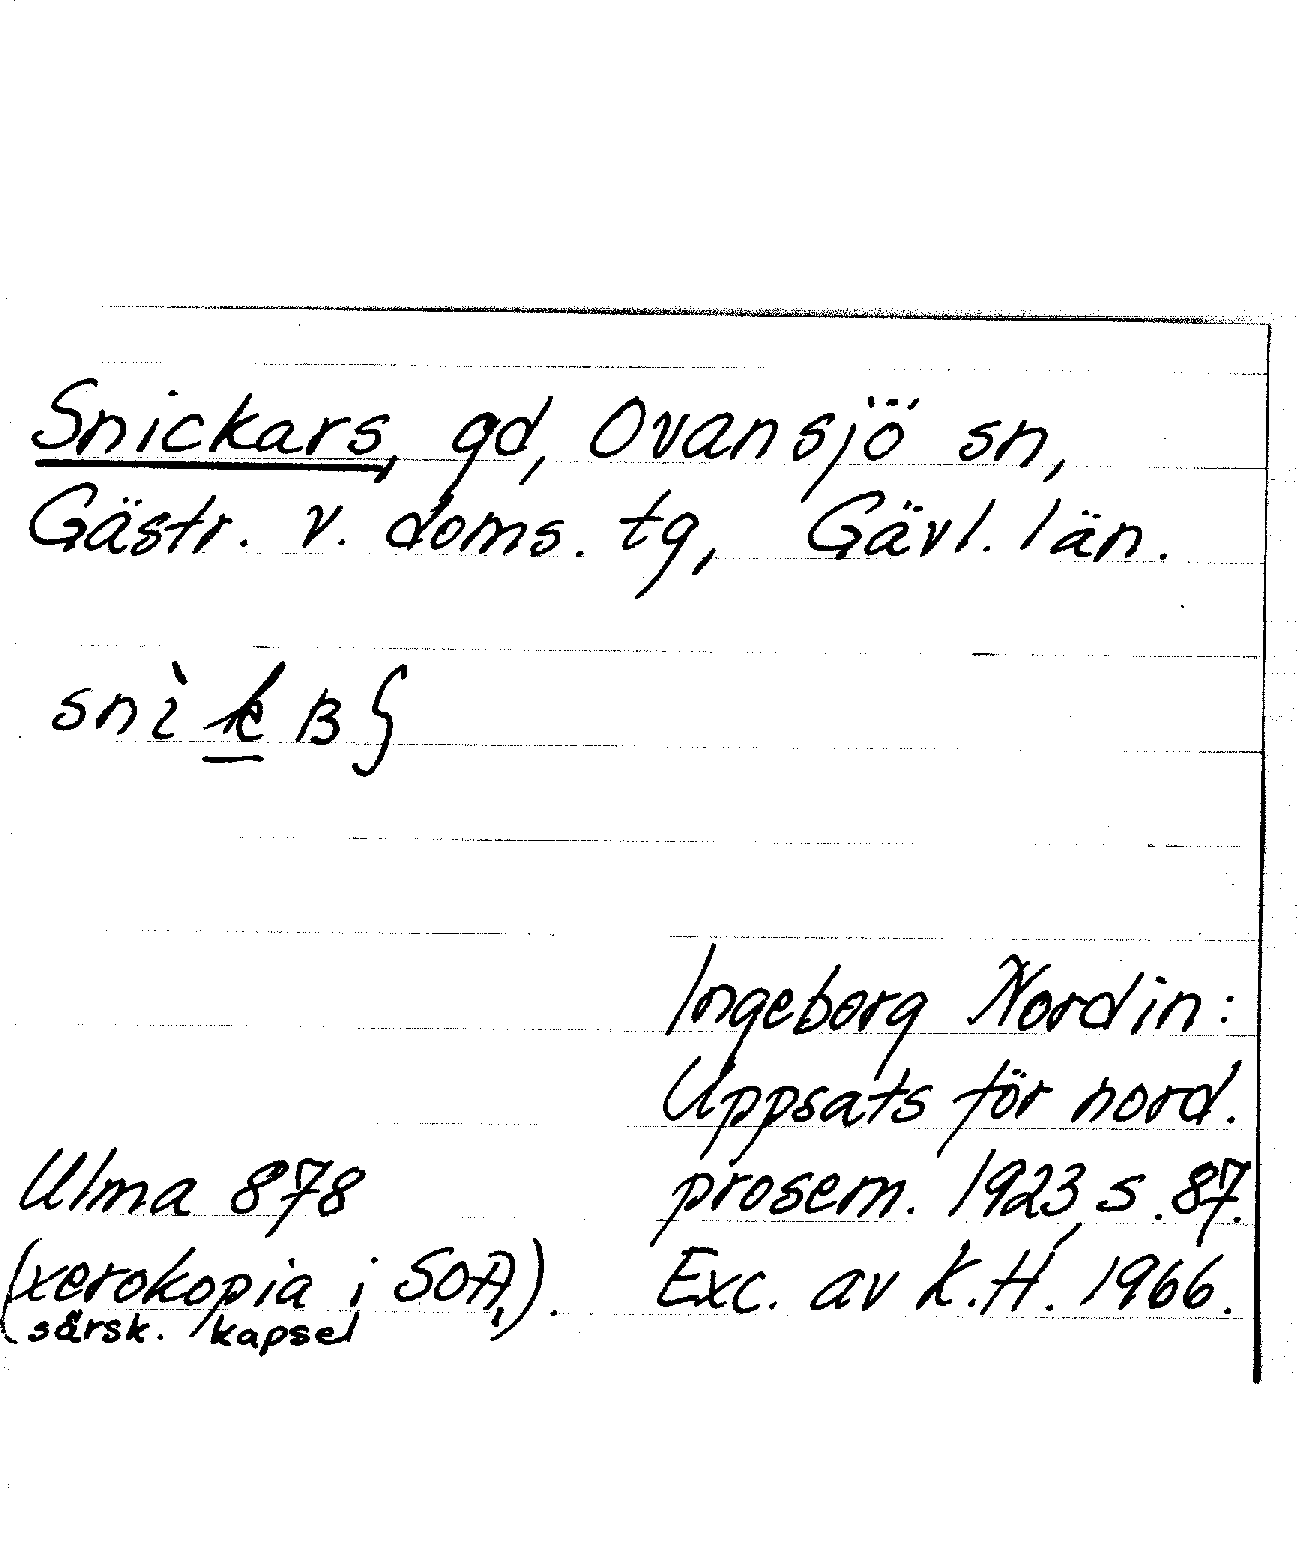 Snickars, gd, Ovansjö sn,
Gästr. v. doms. tg, Gävl. län.
Ingeborg Nordin:
Uppsats för nord.
prosem. 1923, s. 87.
Exc. av K.H. 1966.
Ulma 878
(xerokopia i SOA,).
särsk. kapsel